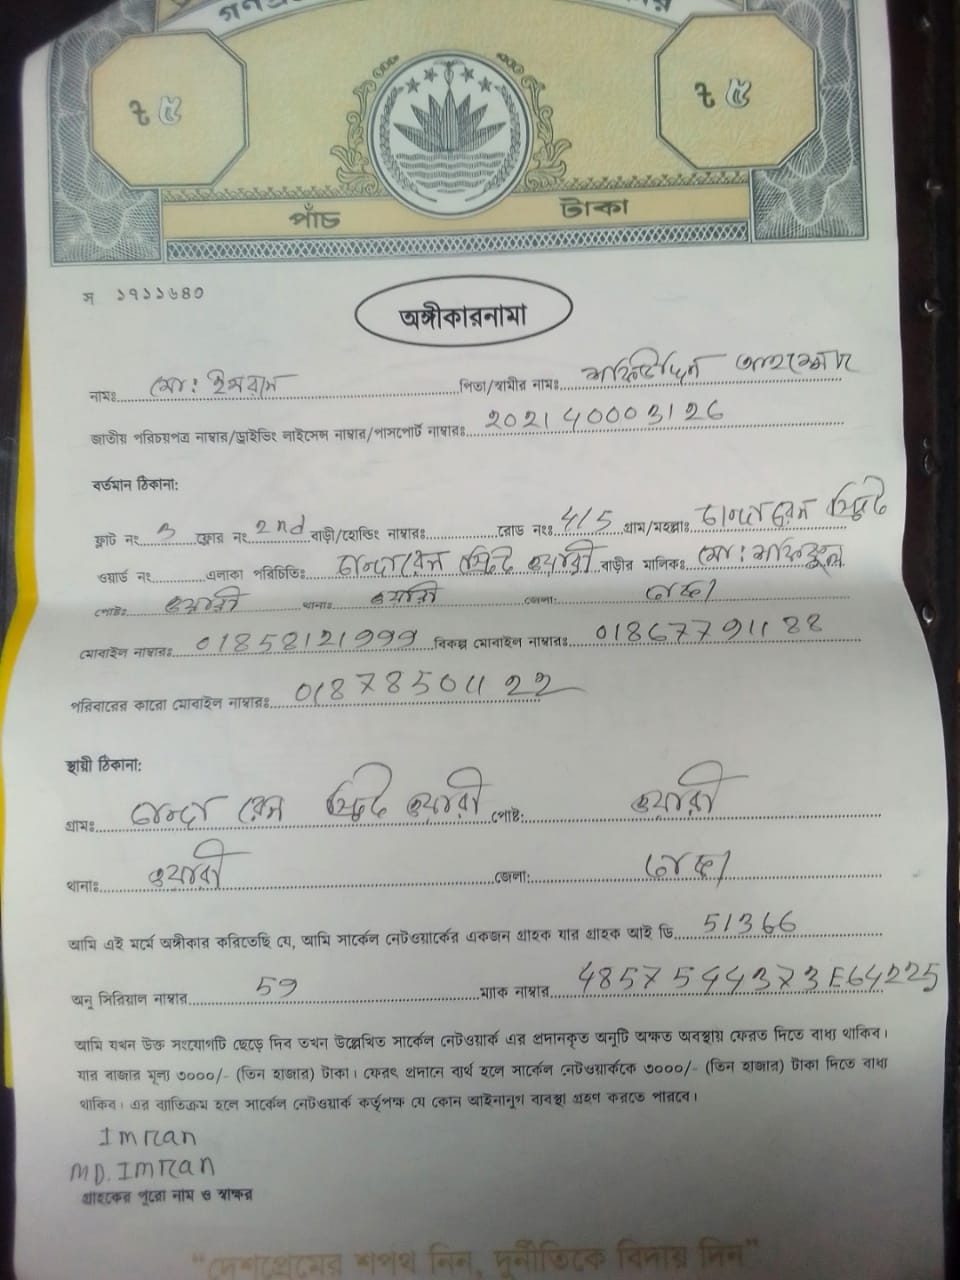 ৳ ৫
৳ ৫
পাঁচ টাকা
স ১৭১১৬৪০
অঙ্গীকারনামা
নামঃ মো: ইমরান পিতা/স্বামীর নামঃ
জাতীয় পরিচয়পত্র নাম্বার/ড্রাইভিং লাইসেন্স নাম্বার/পাসপোর্ট নাম্বারঃ 202140003126
বর্তমান ঠিকানা:
ফ্লাট নং 3 ফ্লোর নং 2nd বাড়ী/হোল্ডিং নাম্বারঃ রোড নংঃ 4/5 গ্রাম/মহল্লাঃ
ওয়ার্ড নং এলাকা পরিচিতিঃ ওয়ারী বাড়ীর মালিকঃ মো:
পোষ্টঃ ওয়ারী থানাঃ ওয়ারী জেলা: ঢাকা
মোবাইল নাম্বারঃ 01858121999 বিকল্প মোবাইল নাম্বারঃ
পরিবারের কারো মোবাইল নাম্বারঃ
স্থায়ী ঠিকানা:
গ্রামঃ ওয়ারী পোষ্ট: ওয়ারী
থানাঃ ওয়ারী জেলা: ঢাকা
আমি এই মর্মে অঙ্গীকার করিতেছি যে, আমি সার্কেল নেটওয়ার্কের একজন গ্রাহক যার গ্রাহক আই ডি 51366
অনু সিরিয়াল নাম্বার 59 ম্যাক নাম্বার
আমি যখন উক্ত সংযোগটি ছেড়ে দিব তখন উল্লেখিত সার্কেল নেটওয়ার্ক এর প্রদানকৃত অনুটি অক্ষত অবস্থায় ফেরত দিতে বাধ্য থাকিব।
যার বাজার মূল্য ৩০০০/- (তিন হাজার) টাকা। ফেরৎ প্রদানে ব্যর্থ হলে সার্কেল নেটওয়ার্ককে ৩০০০/- (তিন হাজার) টাকা দিতে বাধ্য
থাকিব। এর ব্যতিক্রম হলে সার্কেল নেটওয়ার্ক কর্তৃপক্ষ যে কোন আইনানুগ ব্যবস্থা গ্রহণ করতে পারবে।
Imran
MD. Imran
গ্রাহকের পুরো নাম ও স্বাক্ষর
"দেশপ্রেমের শপথ নিন, দুর্নীতিকে বিদায় দিন"